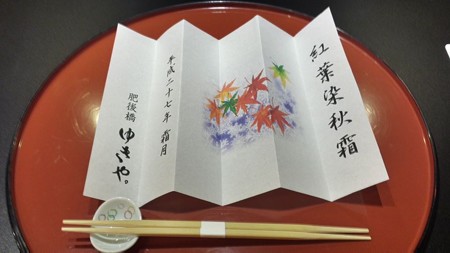 紅葉染秋霜
平成二十七年 霜月
肥後橋
ゆきや。